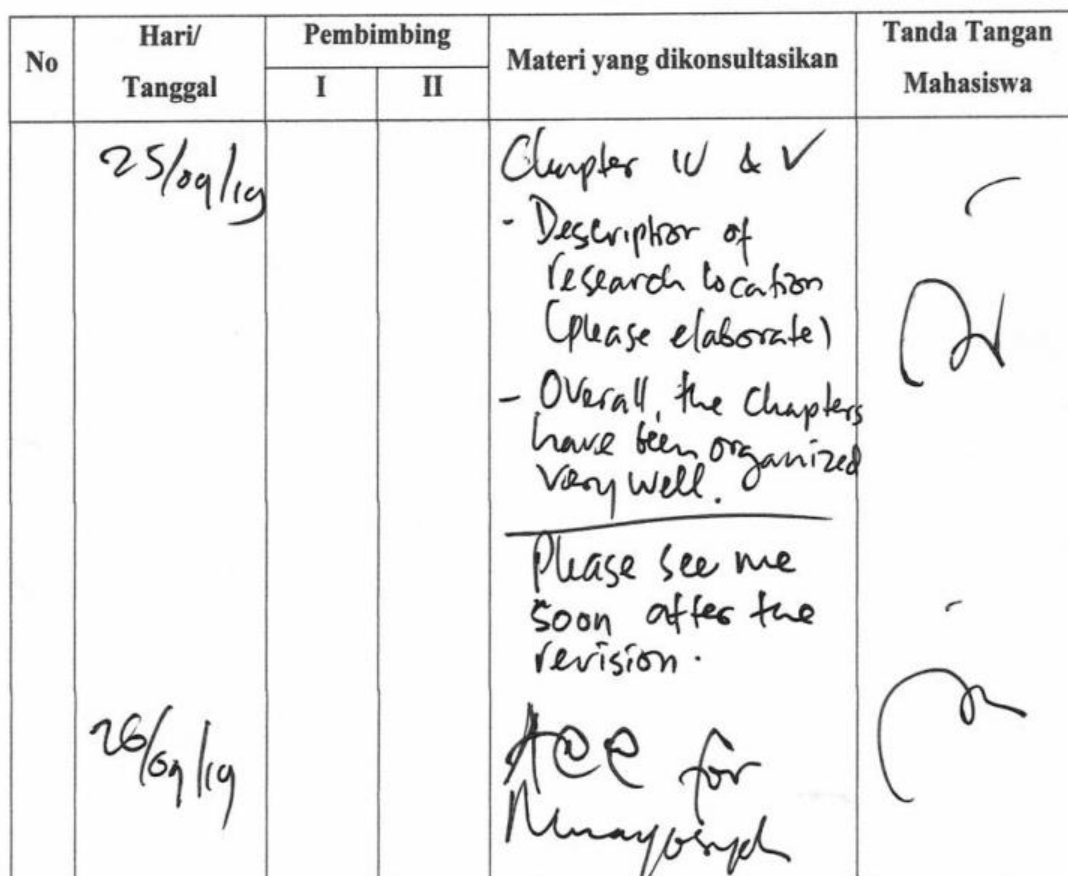 No
Hari/
Tanggal
Pembimbing
I
II
Materi yang dikonsultasikan
Tanda Tangan
Mahasiswa
25/09/19
Chapter IV & V
- Description of
research location
(please elaborate)
- Overall, the chapters
have been organized
very well.
Please see me
soon after the
revision.
26/09/19
ACC for